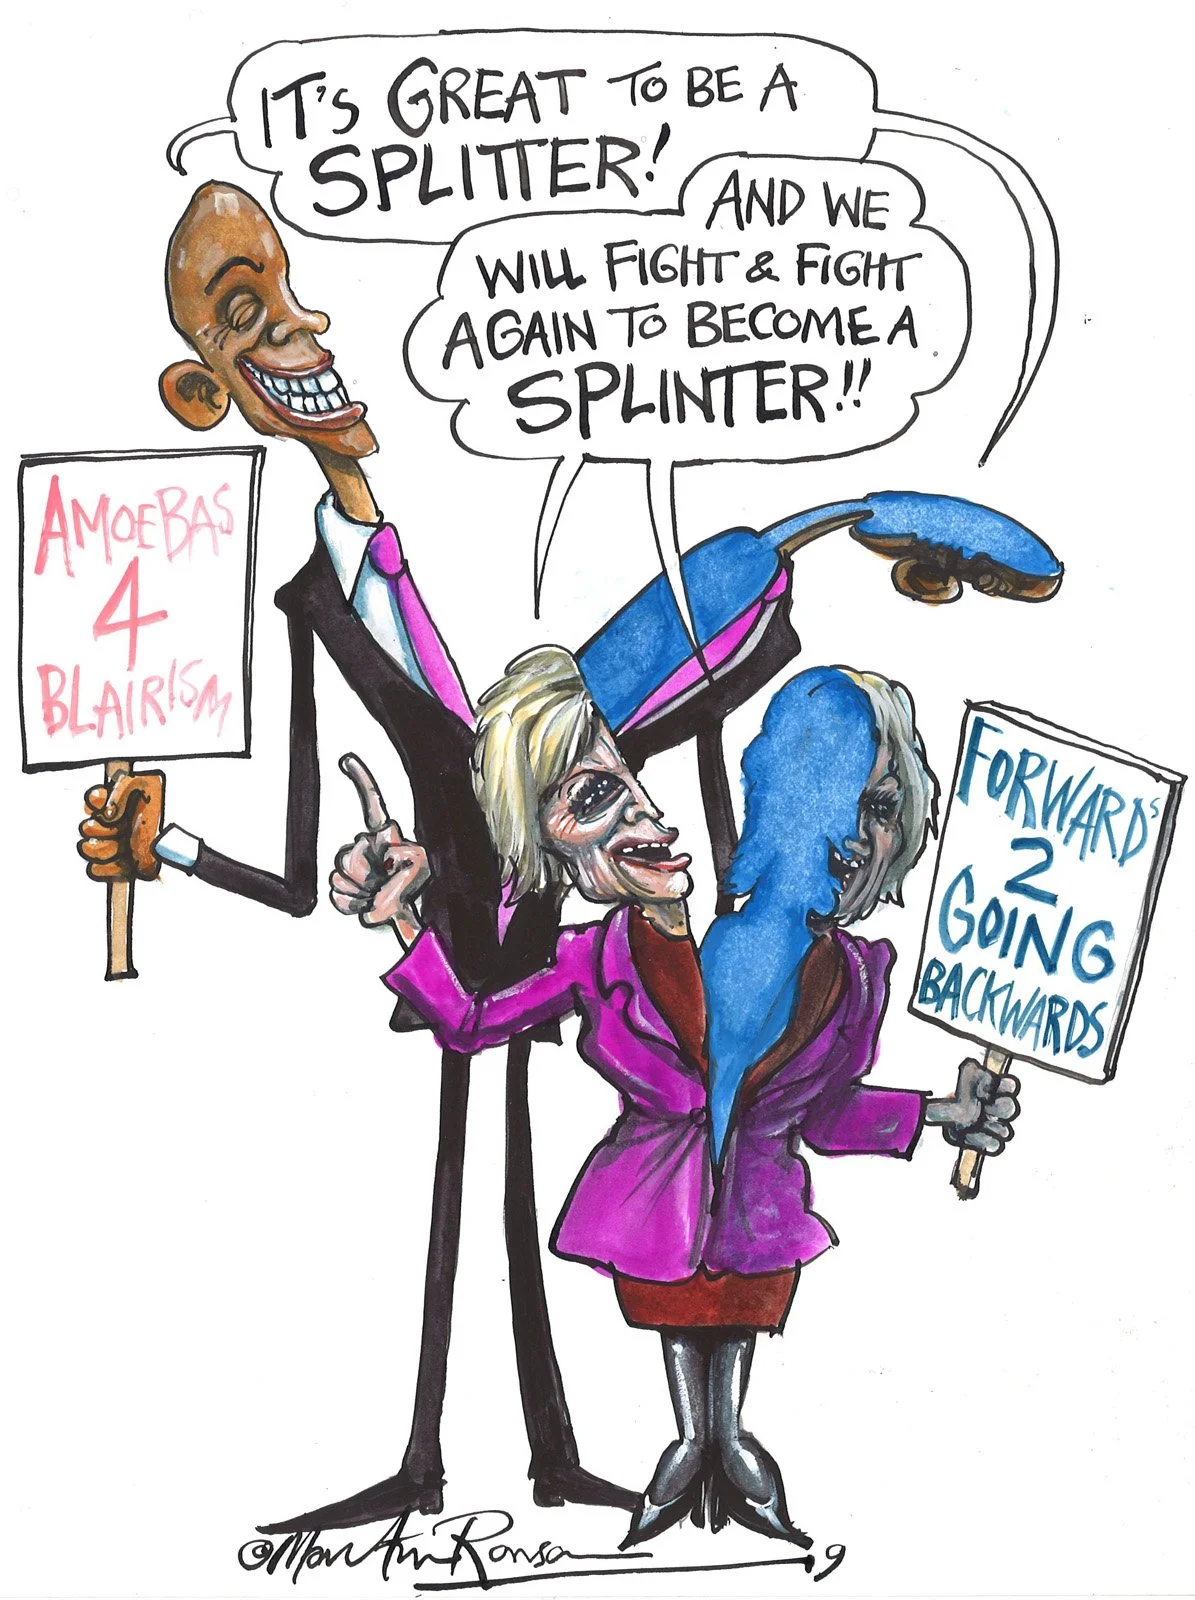 IT'S GREAT TO BE A
SPLITTER!
AND WE
WILL FIGHT & FIGHT
AGAIN TO BECOME A
SPLINTER!!
AMOEBAS
4
BLAIRISM
FORWARDS
2
GOING
BACKWARDS